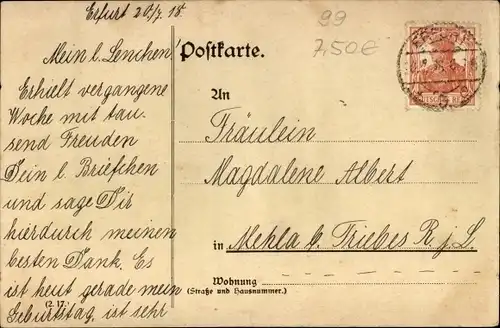 Erfurt 20/7. 18.
99
7,50€
Mein l. Lenchen!
Erhielt vergangene
Woche mit tau-
send Freuden
Dein l. Briefchen
und sage Dir
hierdurch meinen
besten Dank. Es
ist heut gerade mein
Geburtstag, ist sehr
(2. 17.)
Postkarte.
An
Fräulein
Magdalene Albert
in Mehla b. Triebes R. j. L.
Wohnung
(Straße und Hausnummer.)